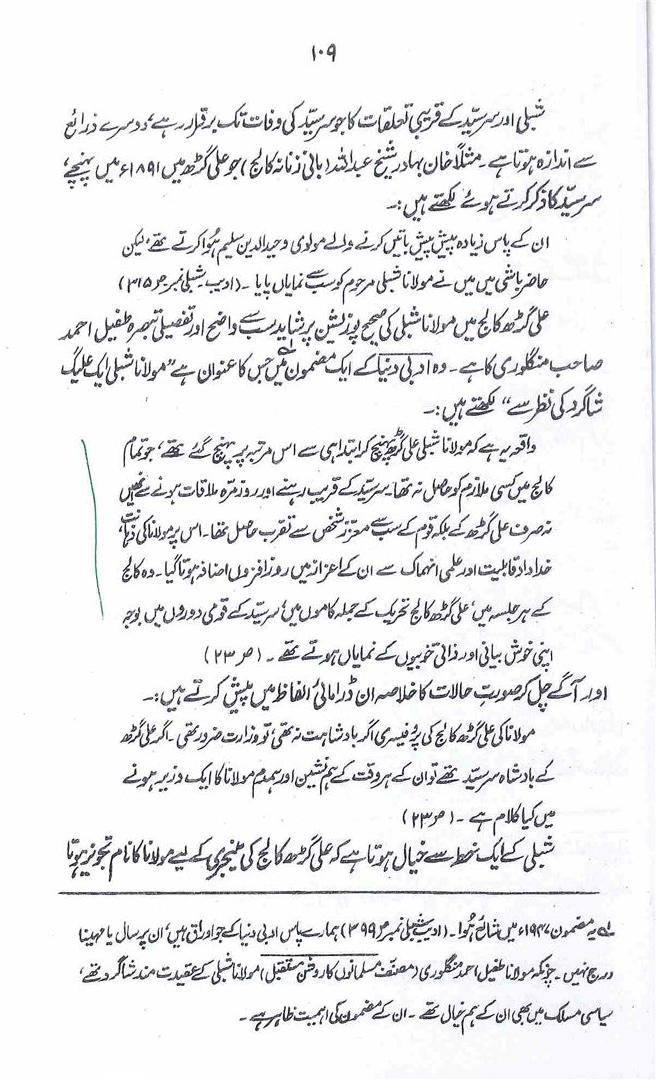 ۱۰۹
شبلی اور سرسیّد کے قریبی تعلقات کا جو سرسیّد کی وفات تک برقرار رہے، دوسرے ذرائع
سے اندازہ ہوتا ہے۔ مثلاً خان بہادر شیخ عبداللہ (بانی زنانہ کالج) جو علی گڑھ میں ۱۸۹۱ء میں پہنچے،
سرسیّد کا ذکر کرتے ہوئے لکھتے ہیں:۔
ان کے پاس زیادہ پیش پیش باتیں کرنے والے مولوی وحیدالدین سلیم ہُوا کرتے تھے، لیکن
حاضر باشی میں میں نے مولانا شبلی مرحوم کو سب سے نمایاں پایا۔ (ادیب شبلی نمبر ص ۳۱۵)
علی گڑھ کالج میں مولانا شبلی کی صحیح پوزیشن پر شاید سب سے واضح اور تفصیلی تبصرہ طفیل احمد
صاحب منگلوری کا ہے۔ وہ ادبی دنیا کے ایک مضمون میں جس کا عنوان ہے ”مولانا شبلی ایک علیگ
شاگرد کی نظر سے“ لکھتے ہیں:۔
واقعہ یہ ہے کہ مولانا شبلی علی گڑھ پہنچ کر ابتدا ہی سے اس مرتبہ پر پہنچ گئے تھے، جو تمام
کالج میں کسی ملازم کو حاصل نہ تھا۔ سرسیّد کے قریب رہنے اور روزمرّہ ملاقات ہونے سے انھیں
نہ صرف علی گڑھ کے بلکہ قوم کے سب سے معزّز شخص سے تقرب حاصل تھا۔ اس پر مولانا کی ذہانت،
خداداد قابلیت اور علمی انہماک سے ان کے اعزاز میں روز افزوں اضافہ ہوتا گیا۔ وہ کالج
کے ہر جلسہ میں، علی گڑھ کالج تحریک کے جملہ کاموں میں، سرسیّد کے قومی دوروں میں بوجہ
اپنی خوش بیانی اور ذاتی خوبیوں کے نمایاں ہوتے تھے۔ (ص ۲۳)
اور آگے چل کر صورتِ حالات کا خلاصہ ان ڈرامائی الفاظ میں پیش کرتے ہیں:۔
مولانا کی علی گڑھ کالج کی پروفیسری اگر بادشاہت نہ تھی، تو وزارت ضرور تھی۔ اگر علی گڑھ
کے بادشاہ سرسیّد تھے تو ان کے ہر وقت کے ہم نشین اور ہمدم مولانا کا ایک وزیر ہونے
میں کیا کلام ہے۔ (ص ۲۳)
شبلی کے ایک خط سے خیال ہوتا ہے کہ علی گڑھ کالج کی منیجری کے لیے مولانا کا نام تجویز ہوتا
لے یہ مضمون ۱۹۴۷ء میں شائع ہُوا۔ (ادیب شبلی نمبر ص ۳۹۹) ہمارے پاس ادبی دنیا کے جو اوراق ہیں، ان پر سال یا مہینا
درج نہیں۔ چونکہ مولانا طفیل احمد منگلوری (مصنّف مسلمانوں کا روشن مستقبل) مولانا شبلی کے عقیدت مند شاگرد تھے،
سیاسی مسلک میں بھی ان کے ہم خیال تھے۔ ان کے مضمون کی اہمیت ظاہر ہے۔